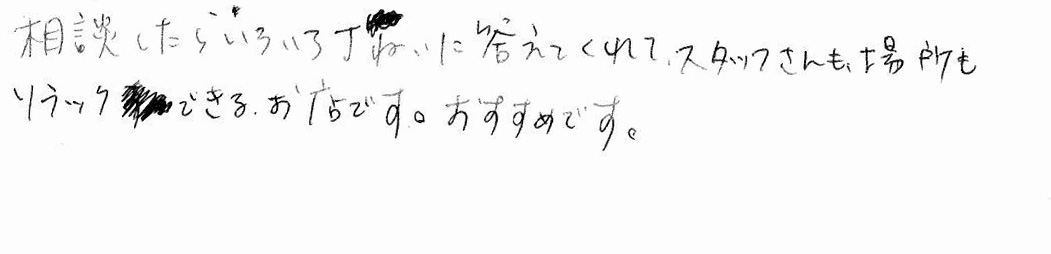 相談したらいろいろ丁ねいに答えてくれて、スタッフさんも、場所も
リラックできる、お店です。おすすめです。